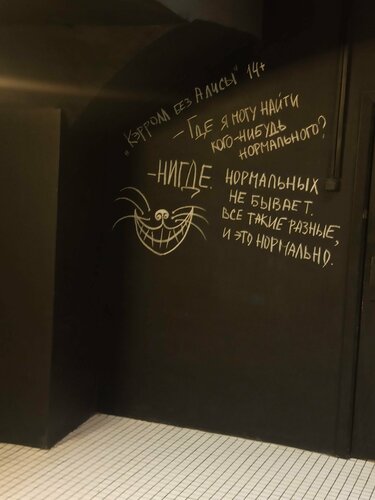 "Кэрролл без Алисы" 14+
- Где я могу найти
кого-нибудь
нормального?
- Нигде.
Нормальных
не бывает.
Все такие разные,
и это нормально.